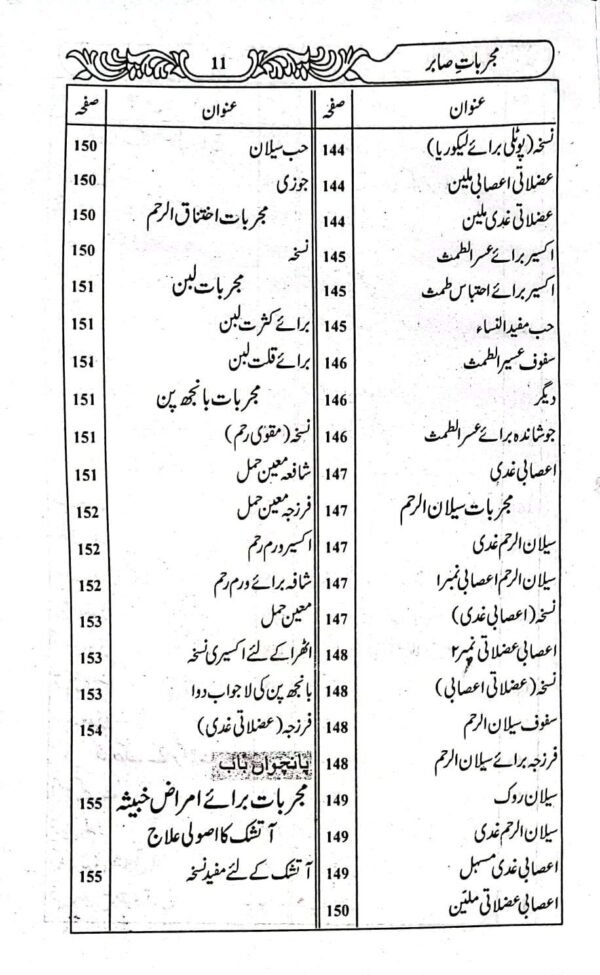 مجرباتِ صابر
11
عنوان صفحہ
نسخہ (پوٹلی برائے لیکوریا) 144
عضلاتی اعصابی ملین 144
عضلاتی غدی ملین 144
اکسیر برائے عسر الطمث 145
اکسیر برائے احتباس طمث 145
حب مفید النساء 145
سفوف عسیر الطمث 146
دیگر 146
جوشاندہ برائے عسر الطمث 146
اعصابی غدی 147
مجربات سیلان الرحم 147
سیلان الرحم غدی 147
سیلان الرحم اعصابی نمبر۱ 147
نسخہ (اعصابی غدی) 147
اعصابی عضلاتی نمبر۲ 148
نسخہ (عضلاتی اعصابی) 148
سفوف سیلان الرحم 148
فرزجہ برائے سیلان الرحم 148
سیلان روک 149
سیلان الرحم غدی 149
اعصابی غدی مسہل 149
اعصابی عضلاتی ملیّن 150
عنوان صفحہ
حب سیلان 150
جوزی 150
مجربات اختناق الرحم 150
نسخہ 150
مجربات لبن 151
برائے کثرت لبن 151
برائے قلت لبن 151
مجربات بانجھ پن 151
نسخہ (مقوی رحم) 151
شافعہ معین حمل 151
فرزجہ معین حمل 152
اکسیر ورم رحم 152
شافہ برائے ورم رحم 152
معین حمل 153
اٹھرا کے لئے اکسیری نسخہ 153
بانجھ پن کی لاجواب دوا 153
فرزجہ (عضلاتی غدی) 154
پانچواں باب
مجربات برائے امراض خبیثہ 155
آتشک کا اصولی علاج
آتشک کے لئے مفید نسخہ 155